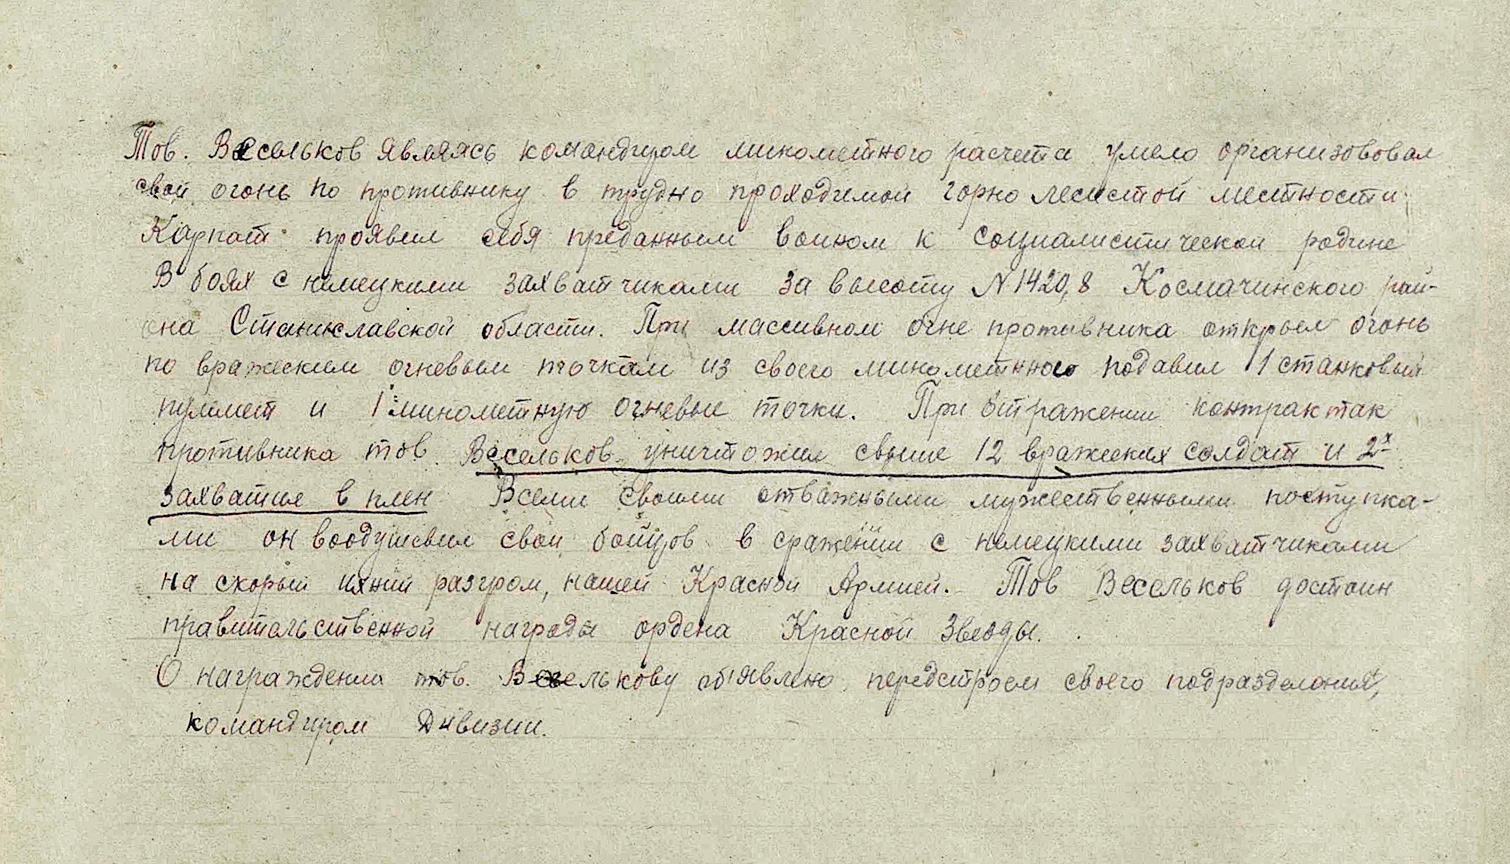 Тов. Весельков являясь командиром минометного расчета умело организововал
свой огонь по противнику в трудно проходимой горно лесистой местности
Карпат проявил себя преданным воином к социалистической родине
В боях с немецкими захватчиками за высоту N 1420,8 Космачинского рай-
она Станиславской области. При массивном огне противника открыл огонь
по вражеским огневым точкам из своего минометнного подавил 1 станковый
пулемет и 1 минометную огневые точки. При отражении контрактак
противника тов. Весельков уничтожил свыше 12 вражеских солдат и 2х
захватил в плен Всеми своими отважными мужественными поступка-
ми он воодушевил свои бойцов в сражении с немецкими захватчиками
на скорый ихний разгром, нашей Красной Армией. Тов Весельков достоин
правительственной награды ордена Красной Звезды.
О награждении тов. Веселькову объявлено передстроем своего подразделения,
командиром Дивизии.